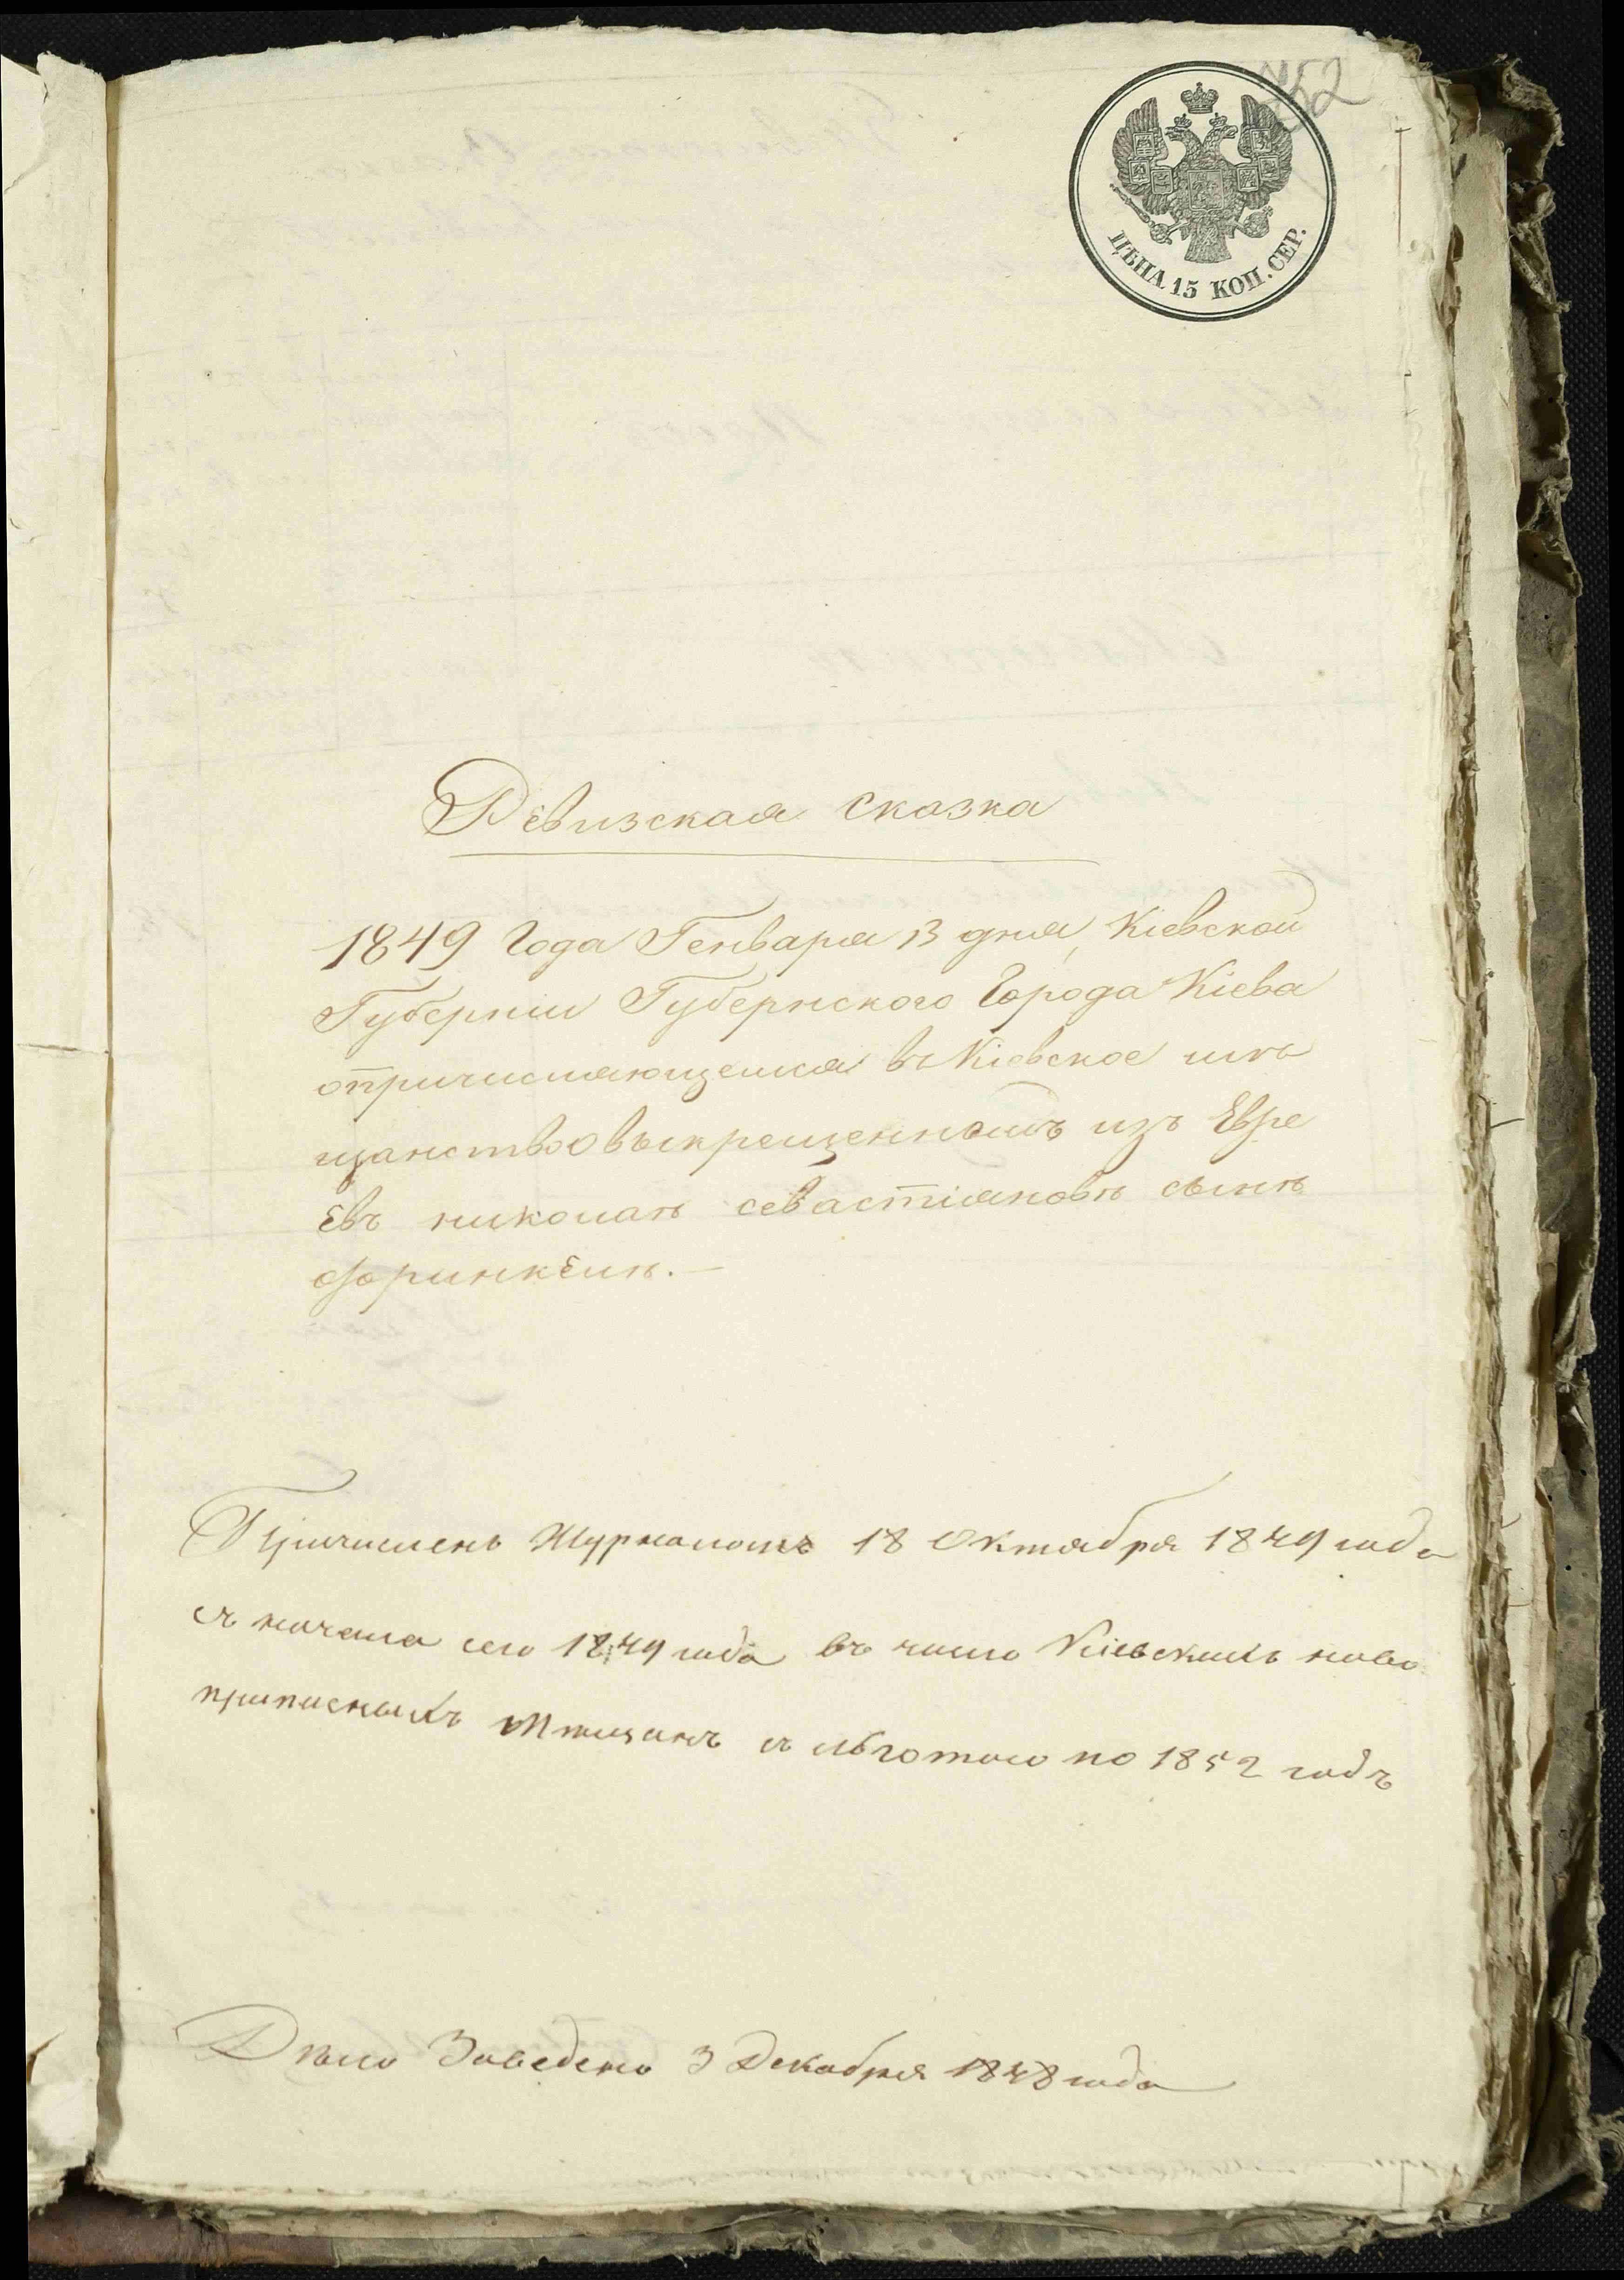 252
ЦѢНА 15 КОП. СЕР.
Ревизская сказка
1849 Года Генваря 13 дня, Кіевской
Губерніи Губернского Города Кіева
опричисляющемся въ Кіевское мѣ
щанство выкрещенномъ изъ Евре
евъ николаѣ севастіяновѣ сынѣ
Причисленъ Журналомъ 18 Октября 1849 года
съ начала сего 1849 года въ число Кіевскихъ ново
приписныхъ Мѣщанъ съ льготою по 1852 годъ
Дѣло Заведено 3 Декабря 1848 года